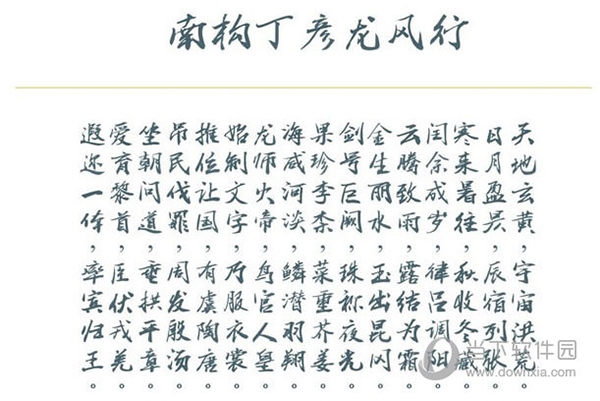 南构丁彦龙风行
天地玄黄，宇宙洪荒。
日月盈昃，辰宿列张。
寒来暑往，秋收冬藏。
闰余成岁，律吕调阳。
云腾致雨，露结为霜。
金生丽水，玉出昆冈。
剑号巨阙，珠称夜光。
果珍李柰，菜重芥姜。
海咸河淡，鳞潜羽翔。
龙师火帝，鸟官人皇。
始制文字，乃服衣裳。
推位让国，有虞陶唐。
吊民伐罪，周发殷汤。
坐朝问道，垂拱平章。
爱育黎首，臣伏戎羌。
遐迩一体，率宾归王。
当下软件园
www.downxia.com